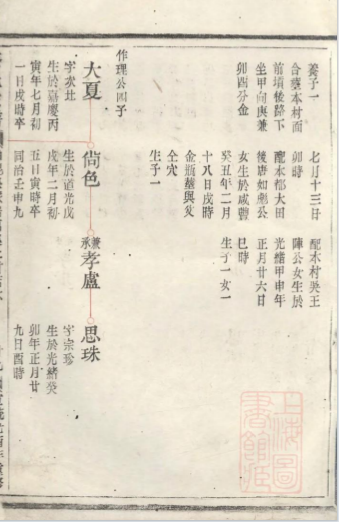 養子一 七月十三日 配本村吳王
合葬本村面 卯時 陳公女生於
前墳後路下 配本都大田 光緒甲申年
坐甲向庚兼 後唐如劍公 正月廿六日
卯酉分金 女生於咸豐 巳時
癸丑年二月 生子一女一
十八日戌時
金瓶墓與父
仝穴
生子一
作理公四子
大夏 尚色 兼承孝廬 思珠
字次壯 生於道光戊 字宗珍
生於嘉慶丙 戌年二月初 生於光緒癸
寅年七月初 五日寅時卒 卯年正月廿
一日戌時卒 同治壬申九 九日酉時
上海圖書館藏